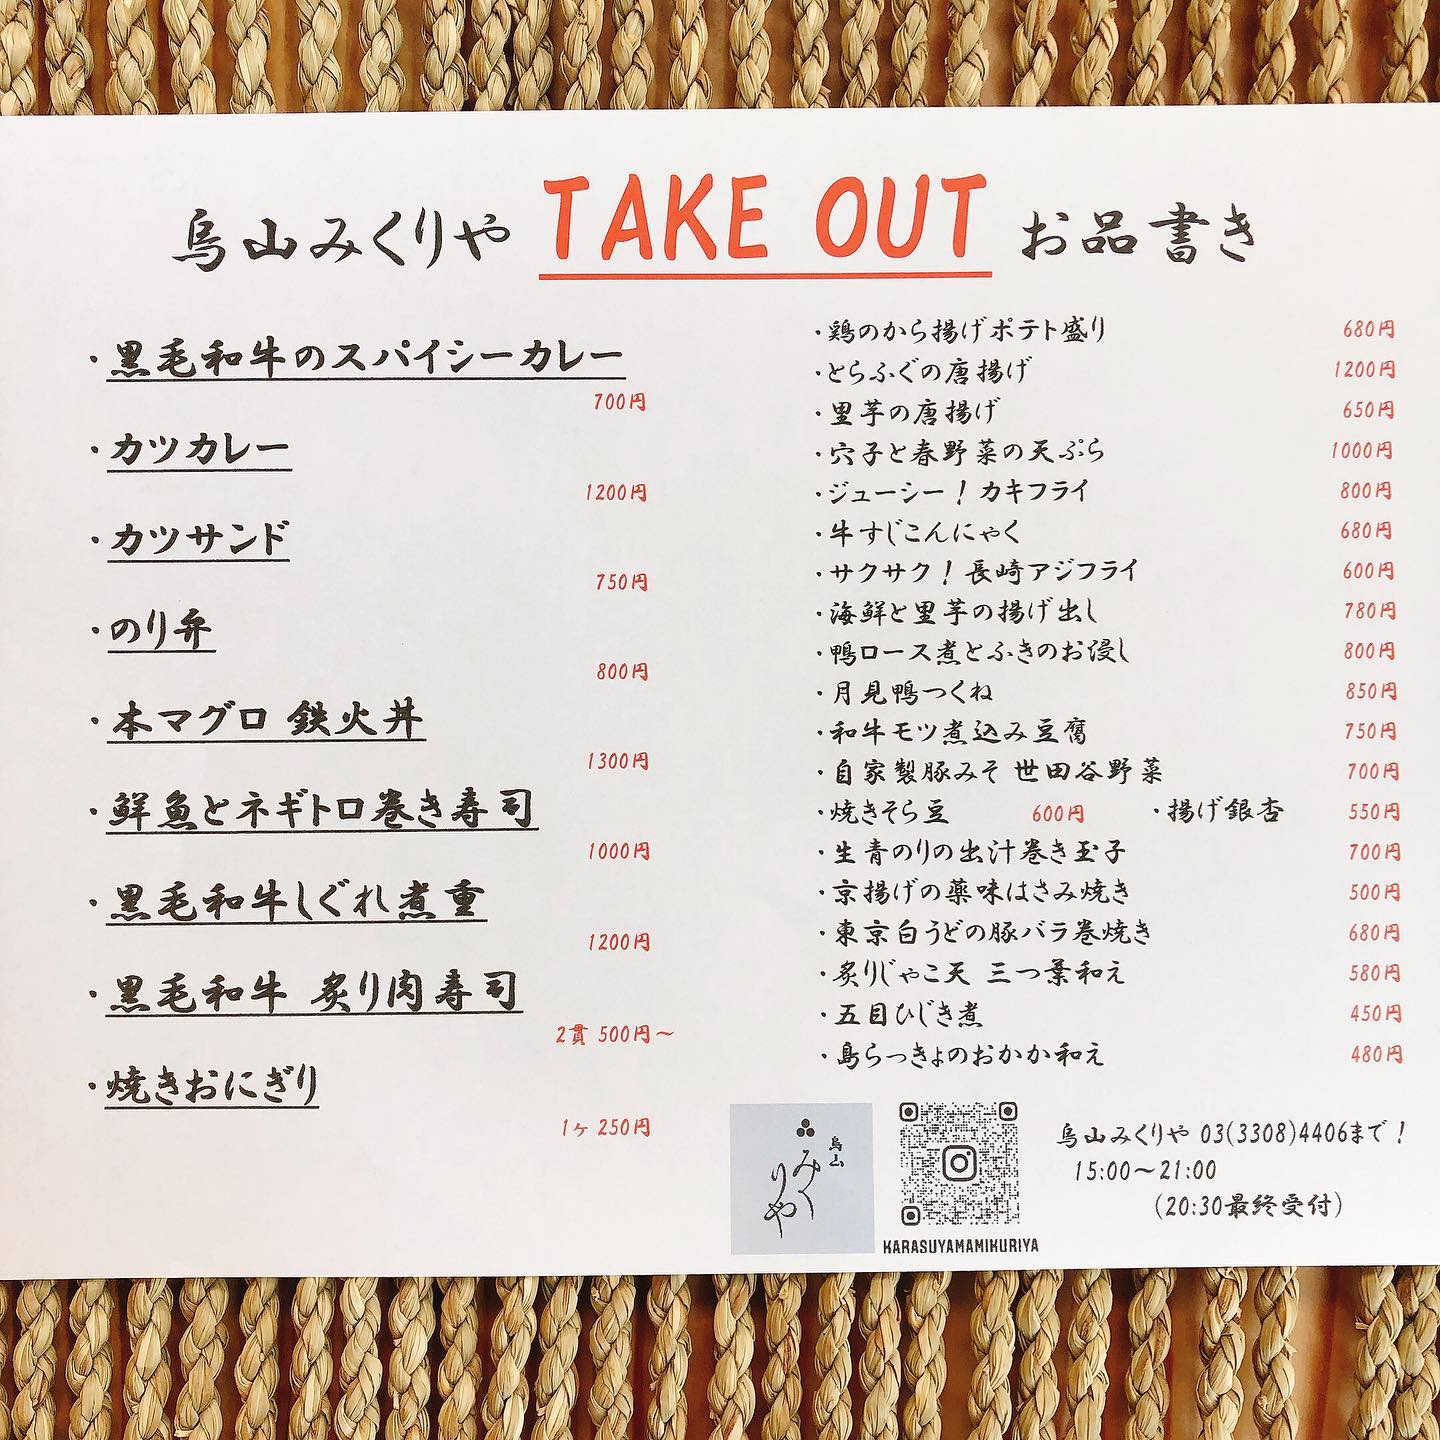 烏山みくりや TAKE OUT お品書き
・黒毛和牛のスパイシーカレー
700円
・カツカレー
1200円
・カツサンド
750円
・のり弁
800円
・本マグロ 鉄火丼
1300円
・鮮魚とネギトロ巻き寿司
1000円
・黒毛和牛しぐれ煮重
1200円
・黒毛和牛 炙り肉寿司
2貫 500円～
・焼きおにぎり
1ヶ 250円
・鶏のから揚げポテト盛り 680円
・とらふぐの唐揚げ 1200円
・里芋の唐揚げ 650円
・穴子と春野菜の天ぷら 1000円
・ジューシー！カキフライ 800円
・牛すじこんにゃく 680円
・サクサク！長崎アジフライ 600円
・海鮮と里芋の揚げ出し 780円
・鴨ロース煮とふきのお浸し 800円
・月見鴨つくね 850円
・和牛モツ煮込み豆腐 750円
・自家製豚みそ 世田谷野菜 700円
・焼きそら豆 600円 ・揚げ銀杏 550円
・生青のりの出汁巻き玉子 700円
・京揚げの薬味はさみ焼き 500円
・東京白うどの豚バラ巻焼き 680円
・炙りじゃこ天 三つ葉和え 580円
・五目ひじき煮 450円
・島らっきょのおかか和え 480円
烏山
みくりや
KARASUYAMAMIKURIYA
烏山みくりや 03(3308)4406まで！
15:00～21:00
(20:30最終受付)